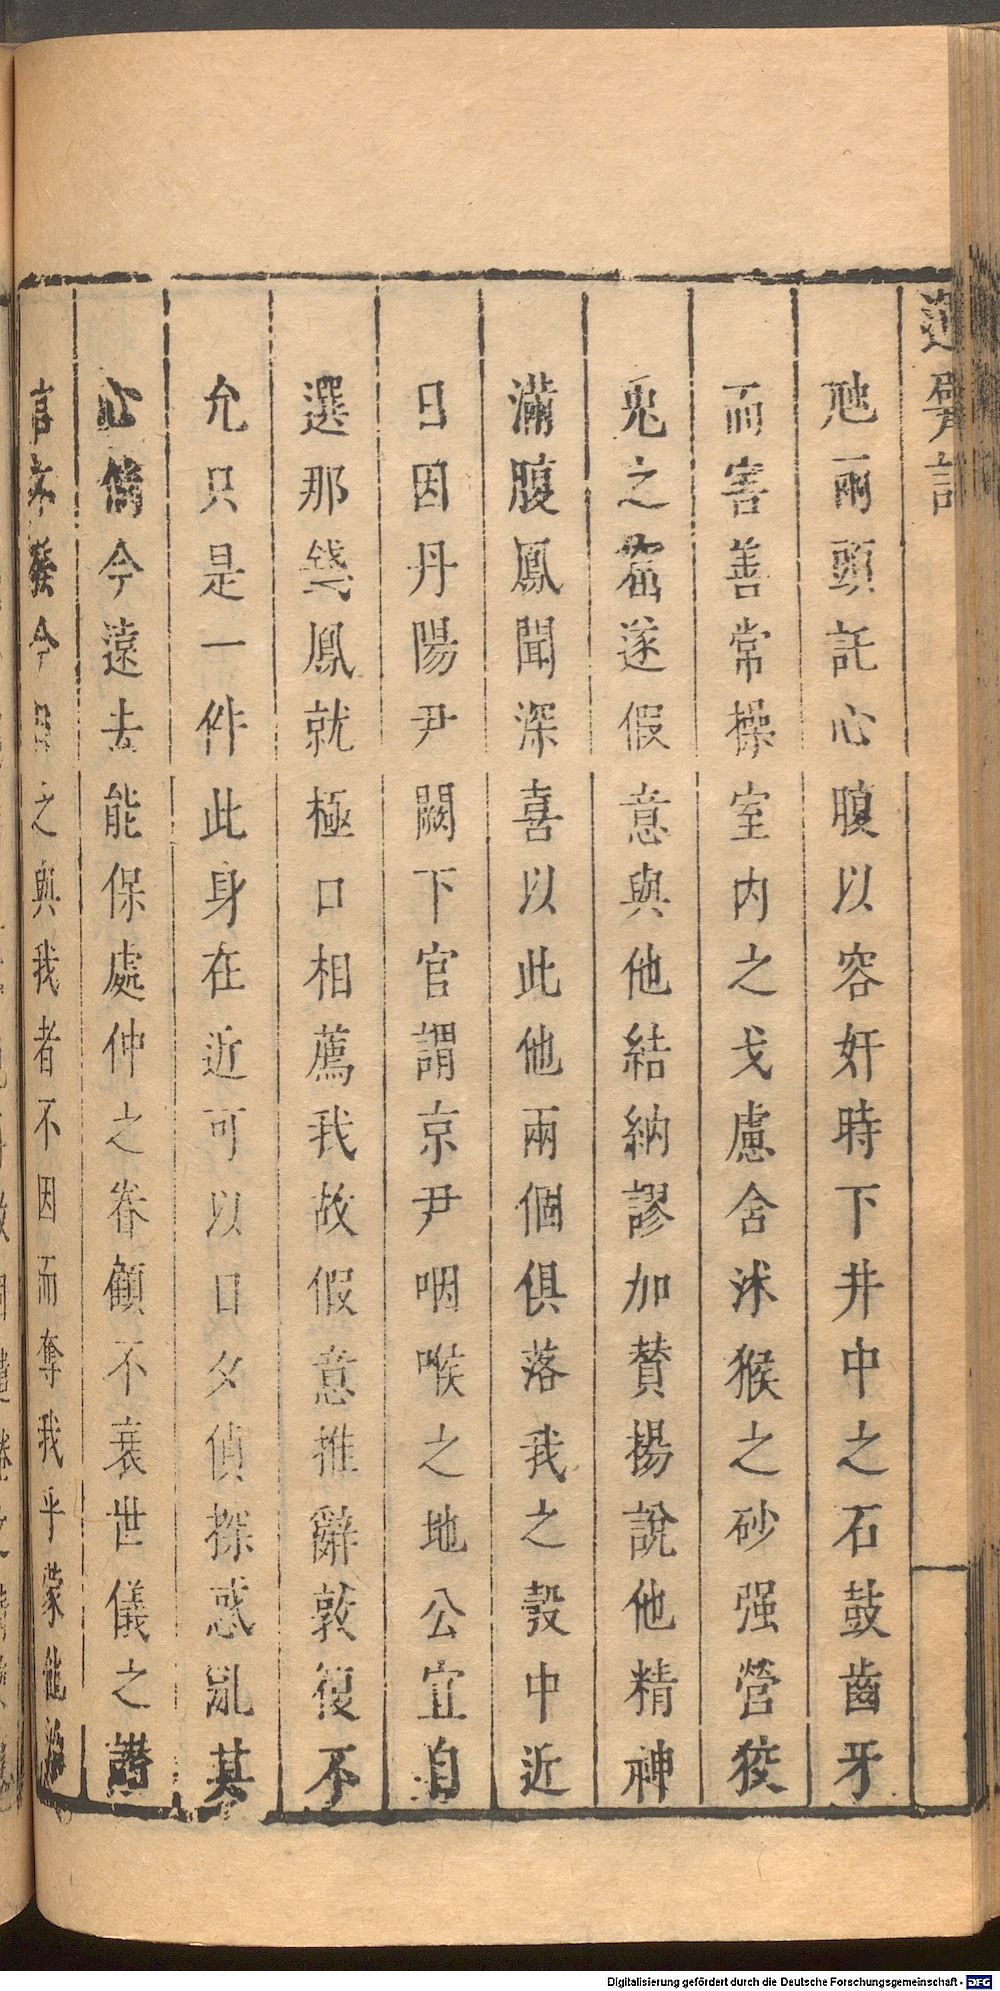 虺兩頭託心腹以容奸時下井中之石鼓齒牙
而害善常操室内之戈慮舍沭猴之砂强營狡
兎之窟遂假意與他結納謬加賛揚說他精神
滿腹鳳聞深喜以此他兩個俱落我之彀中近
日因丹陽尹闕下官謂京尹咽喉之地公宜自
選那錢鳳就極口相薦我故假意推辭敦復不
允只是一件此身在近可以日夕偵探惑亂其
心儻今遠去能保處仲之眷顧不衰世儀之譖
言不 今日之與我者不因而奪我乎蒙
Digitalisierung gefördert durch die Deutsche Forschungsgemeinschaft - DFG